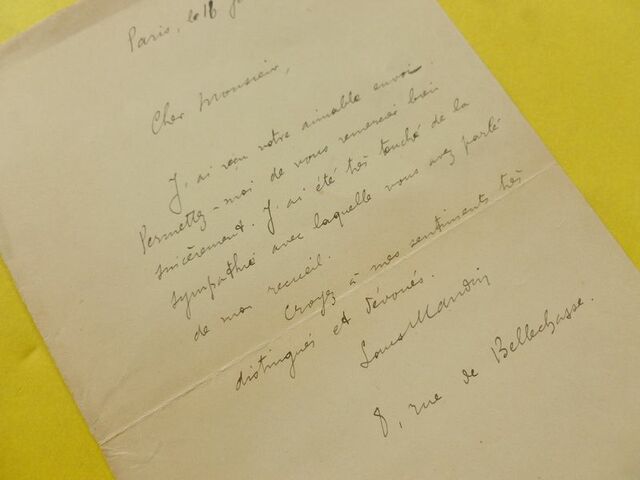 Paris, le 16
Cher Monsieur,
J'ai reçu votre aimable envoi.
Permettez-moi de vous remercier bien
sincèrement. J'ai été très touché de la
sympathie avec laquelle vous avez parlé
de mon recueil.
Croyez à mes sentiments très
distingués et dévoués.
Louis Mandin
8, rue de Bellechasse.